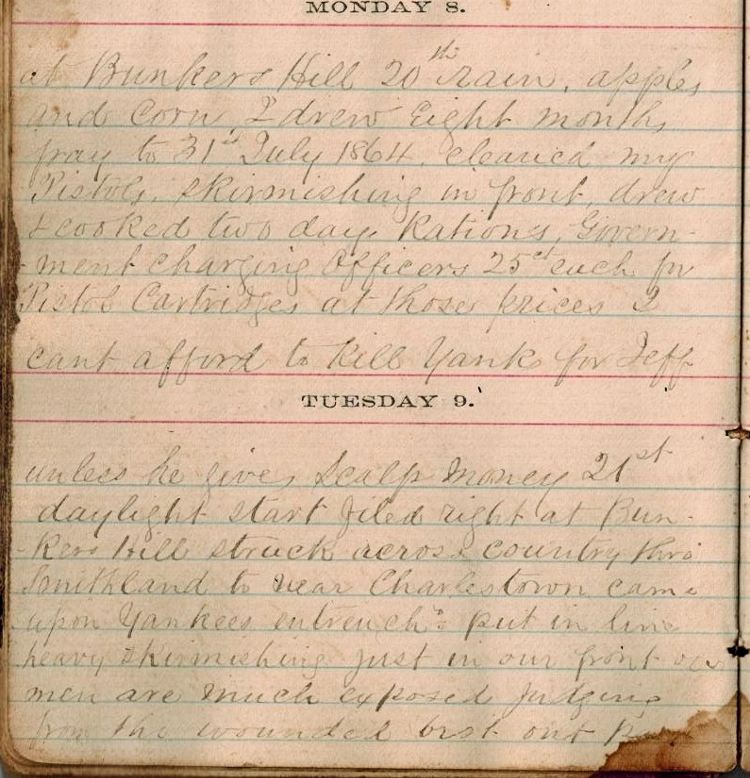 MONDAY 8.
at Bunkers Hill 20th rain, apples
and Corn, I drew Eight months
pay to 31st July 1864. cleaned my
Pistols, skirmishing in front, drew
& cooked two days Rations, Govern-
-ment charging Officers 25ct each for
Pistol Cartridges at those prices I
cant afford to kill Yanks for Jeff
TUESDAY 9.
unless he gives Scalp Money 21st
daylight start filed right at Bun-
-kers Hill struck across country thro
Smithland to near Charlestown came
upon Yankees entrench'd put in line
heavy skirmishing just in our front our
men are much exposed judging
from the wounded brot out